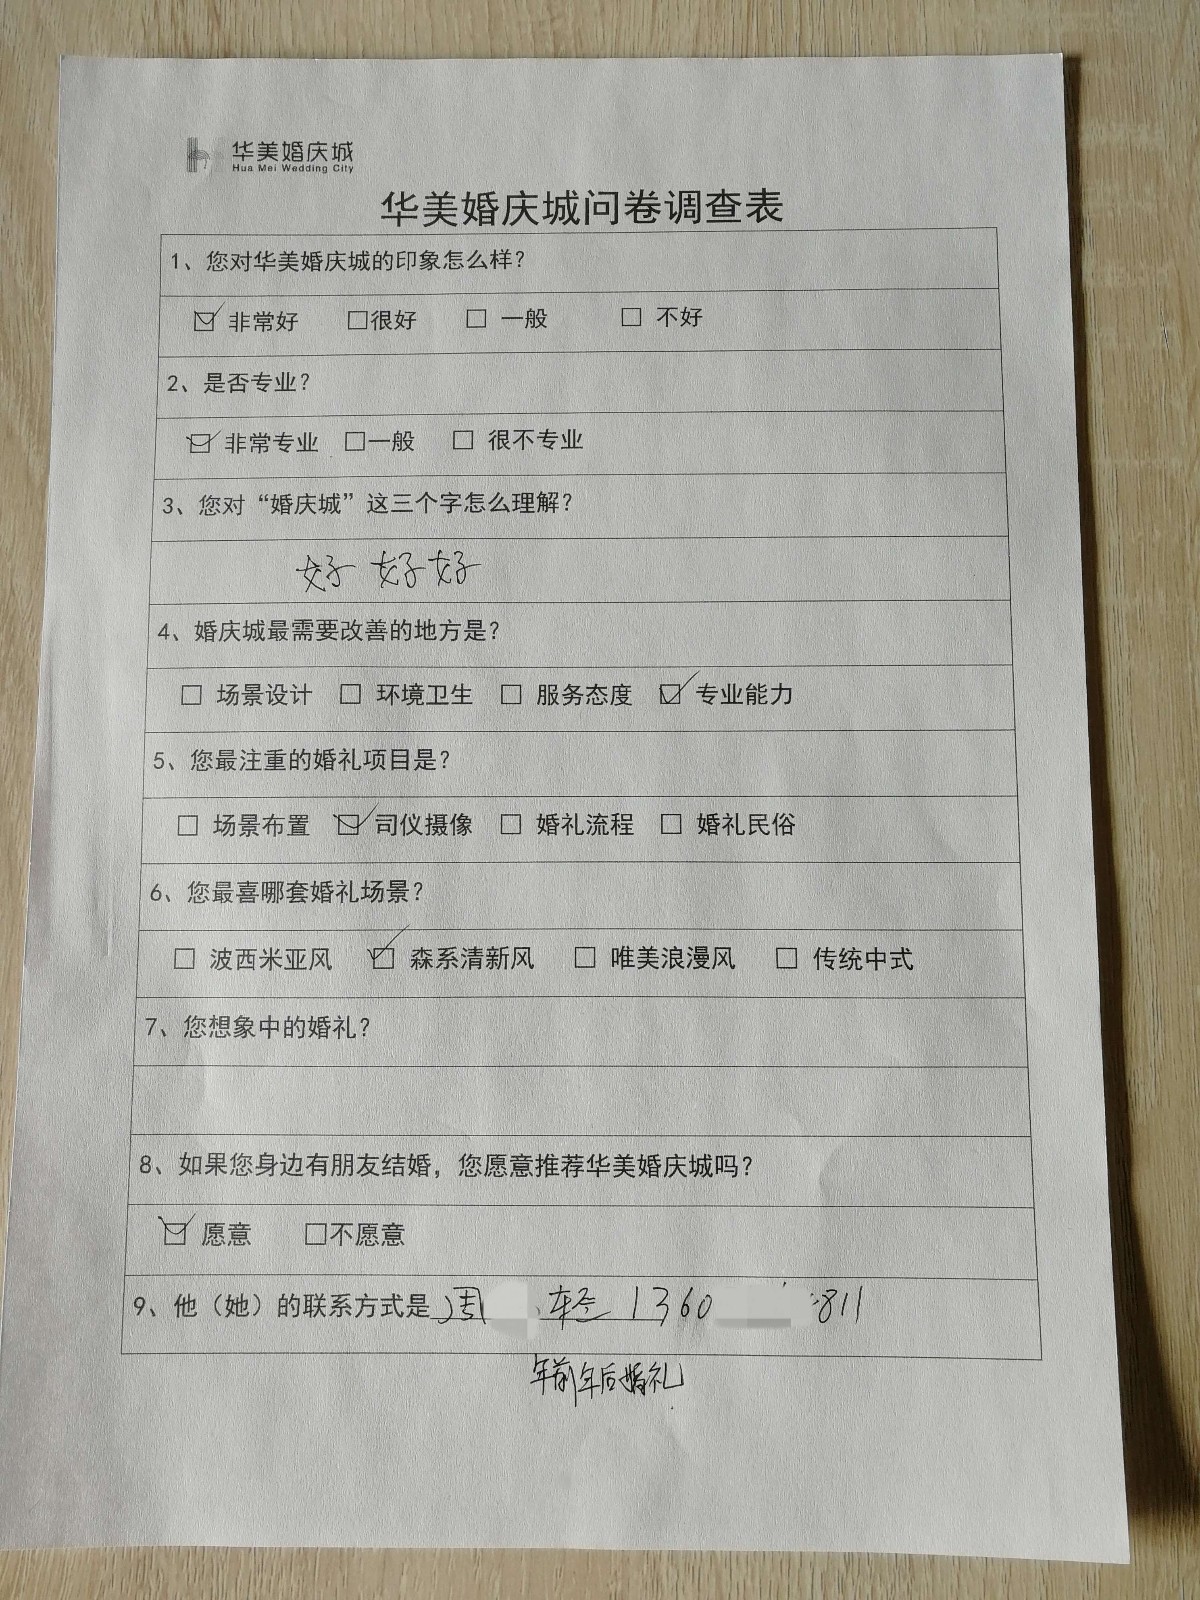 华美婚庆城
Hua Mei Wedding City
华美婚庆城问卷调查表
1、您对华美婚庆城的印象怎么样？
☑ 非常好 □很好 □ 一般 □ 不好
2、是否专业？
☑ 非常专业 □一般 □ 很不专业
3、您对“婚庆城”这三个字怎么理解？
好 好好
4、婚庆城最需要改善的地方是？
□ 场景设计 □ 环境卫生 □ 服务态度 ☑ 专业能力
5、您最注重的婚礼项目是？
□ 场景布置 ☑ 司仪摄像 □ 婚礼流程 □ 婚礼民俗
6、您最喜哪套婚礼场景？
□ 波西米亚风 ☑ 森系清新风 □ 唯美浪漫风 □ 传统中式
7、您想象中的婚礼？
8、如果您身边有朋友结婚，您愿意推荐华美婚庆城吗？
☑ 愿意 □不愿意
9、他（她）的联系方式是 周 轻 1360 811
年前年后婚礼